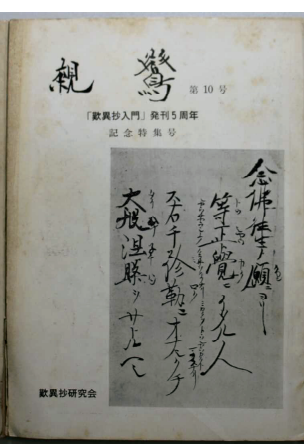 親鸞
第10号
「歎異抄入門」発刊5周年
記念特集号
念佛往生ノ願ニヨリ
等正覺ニイタル人
スナワチ弥勒ニオナシクテ
大般涅槃ヲサトルヘシ
歎異抄研究会